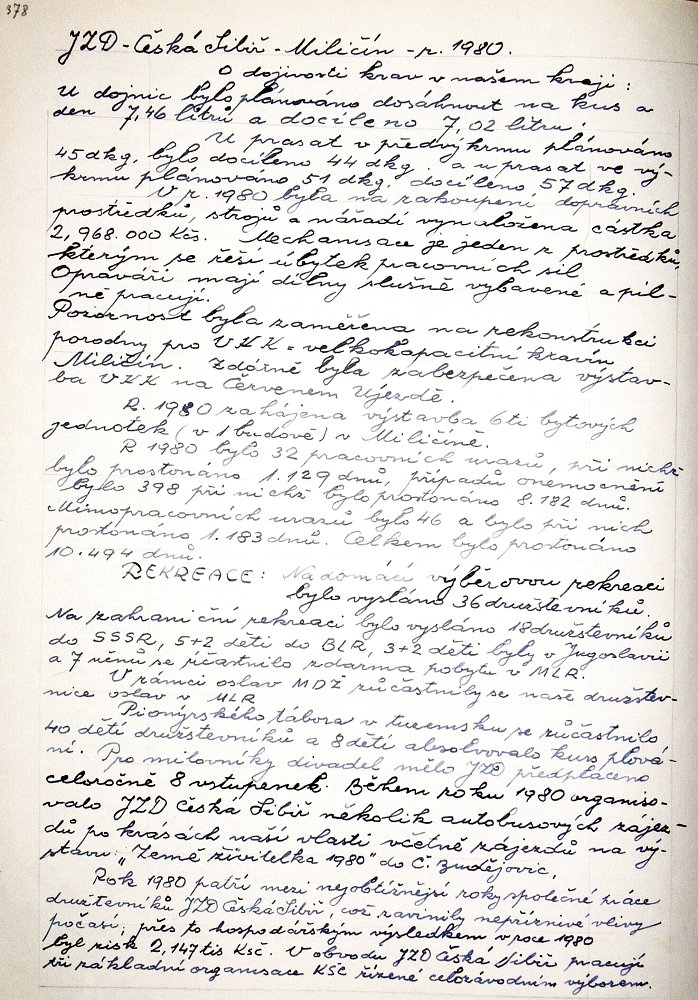 378
JZD - Česká Sibiř - Miličín - r. 1980.
O dojivosti krav v našem kraji :
U dojnic bylo plánováno dosáhnout na kus a
den 7,46 litrů a docíleno 7,02 litru.
U prasat v předvýkrmu plánováno
45 dkg, bylo docíleno 44 dkg. a u prasat ve vý-
krmu plánováno 51 dkg. docíleno 57 dkg.
V r. 1980 byla na zakoupení dopravních
prostředků, strojů a nářadí vynaložena částka
2,968.000 Kčs. Mechanisace je jeden z prostředků,
kterým se řeší úbytek pracovních sil
Opraváři mají dílny slušně vybavené a pil-
ně pracují.
Pozornost byla zaměřena na rekonstrukci
porodny pro VKK = velkokapacitní kravín
Miličín. Zdárně byla zabezpečena výstav-
ba VKK na Červeném Újezdě.
R. 1980 zahájena výstavba 6ti bytových
jednotek (v 1 budově) v Miličíně.
R 1980 bylo 32 pracovních urazů, při nichž
bylo prostonáno 1.129 dnů, případů onemocnění
bylo 398 při nichž bylo prostonáno 8.182 dnů.
Mimopracovních urazů bylo 46 a bylo při nich
prostonáno 1.183 dnů. Celkem bylo prostonáno
10.494 dnů.
REKREACE: Na domácí výběrovou rekreaci
bylo vysláno 36 družstevníků.
Na zahraniční rekreaci bylo vysláno 18 družstevníků
do SSSR, 5+2 děti do BLR, 3+2 děti byly v Jugoslavii
a 7 učnů se účastnilo zdarma pobytu v MLR.
V rámci oslav MDŽ zúčastnily se naše družstev-
nice oslav v MLR
Pionýrského tábora v tuzemsku se zúčastnilo
40 dětí družstevníků a 8 dětí absolvovalo kurs plová-
ní. Pro milovníky divadel mělo JZD předplaceno
celoročně 8 vstupenek. Během roku 1980 organiso-
valo JZD Česká Sibiř několik autobusových zájez-
dů po krásách naší vlasti včetně zájezdů na vý-
stavu "Země živitelka 1980" do Č. Budějovic,
Rok 1980 patří mezi nejobtížnější roky společné práce
družstevníků JZD Česká Sibiř, což zavinily nepříznivé vlivy
počasí; přes to hospodářským výsledkem v roce 1980
byl zisk 2,147 tis Kčs. V obvodu JZD Česká Sibiř pracují
tři základní organisace KSČ řízené celozávodním výborem.